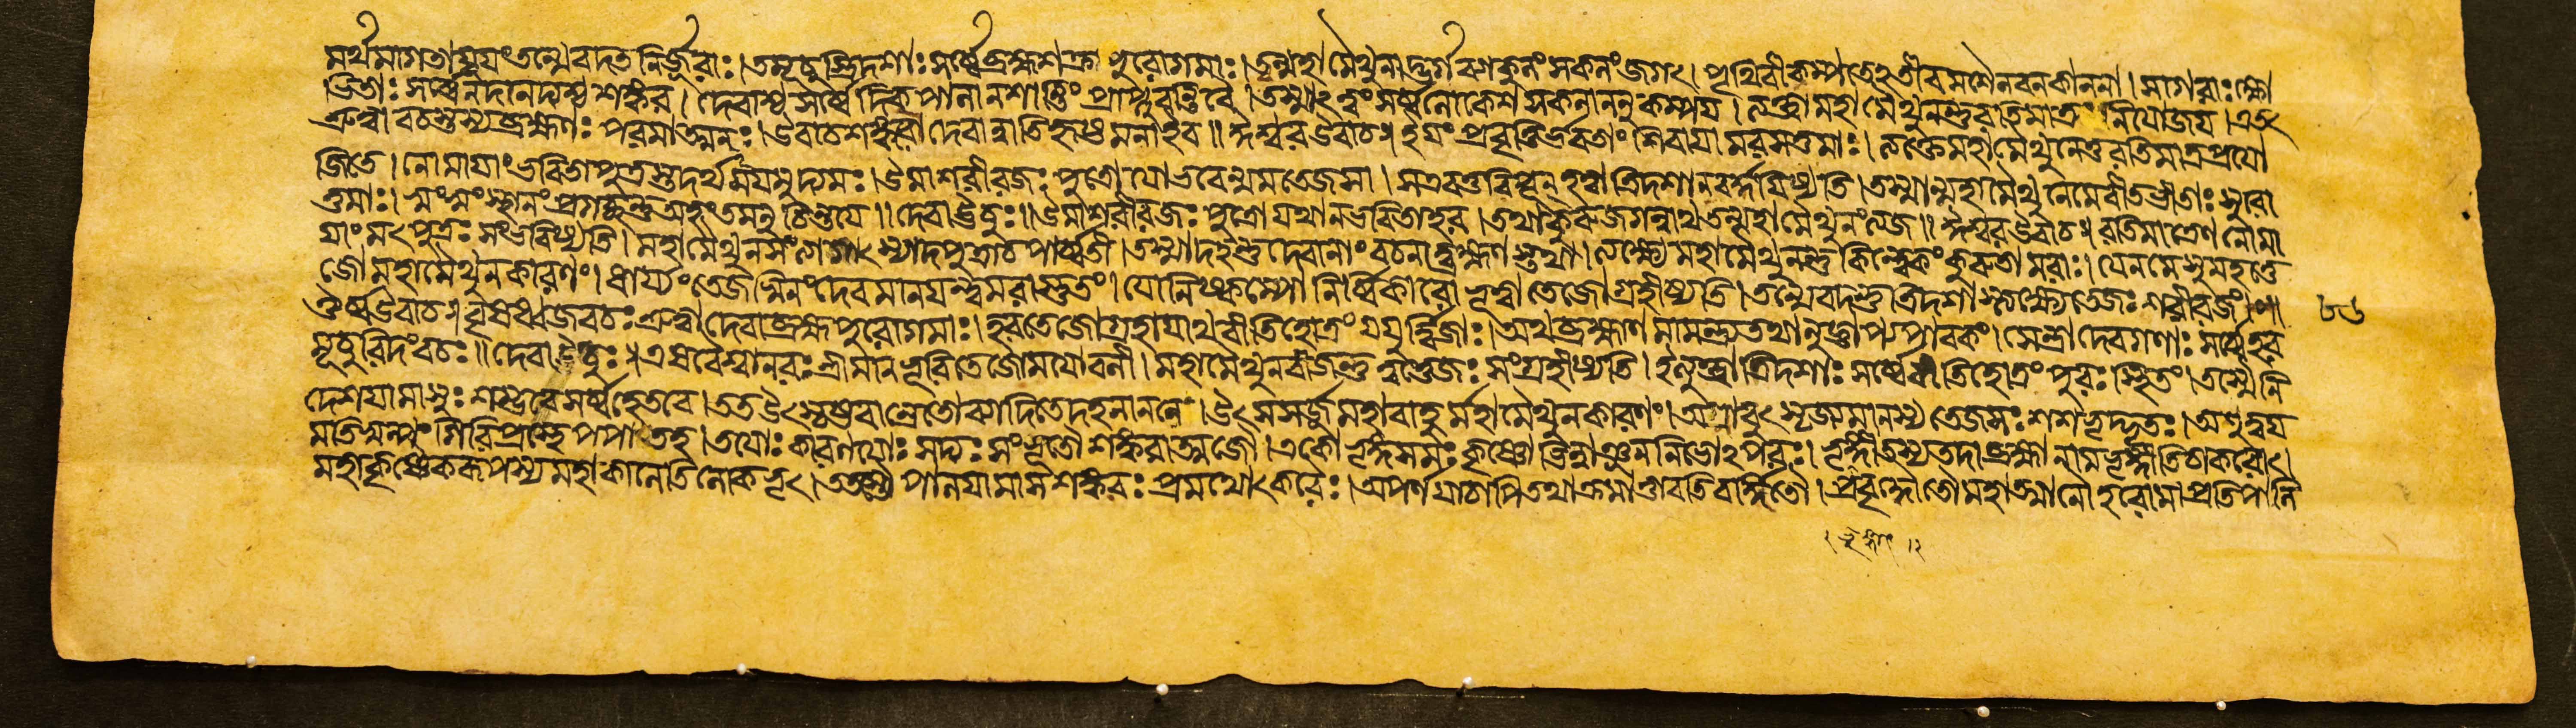 মর্থমাগতা যূয়ং তন্মে বদত নির্জ্জরাঃ। তমূচুস্ত্রিদশাঃ সর্ব্বে ব্রহ্মশক্রপুরোগমাঃ। ত্বন্মহামৈথুনাদ্ভর্গ সকলং জগৎ। পৃথিবী কম্পতেঽতীব সশৈলবনকাননা। সাগরাঃ ক্ষো
ভিতাঃ সর্ব্বে শঙ্কর। দেবাশ্চ সর্ব্বে দিকপালা ন শান্তিং প্রাপ্নুবন্তি বৈ। তস্মাৎ ত্বং সর্ব্বলোকেশ সকলাননুকম্পয়। ত্যক্ত্বা মহামৈথুনন্তু রতিমাত্রং নিযোজয়। এতৎ
শ্রুত্বা বচস্তস্য ব্রহ্মণঃ পরমাত্মনঃ। উবাচ শঙ্করো দেবান্নাতিহৃষ্টমনা ইব॥ ঈশ্বর উবাচ॥ ইয়ং প্রবৃত্তির্ভবতাং শিবায়ামরসত্তমাঃ। ত্যক্তে মহামৈথুনে তু রতিমাত্রপ্রযো
জিতে। নোমায়াং ভবিতা পুত্রস্তদর্থময়মুদ্যমঃ। উমাশরীরজঃ পুত্রো যো ভবেন্মম তেজসা। ত্রিদশান বর্দ্ধয়িষ্যতি। তস্মান্মহামৈথুনে মে বীতভীতাঃ সুরো
ত্তমাঃ। স্বং স্বং স্থানং প্রগচ্ছন্তু অহং তমনু চিন্তয়ে॥ দেবা ঊচুঃ॥ উমাশরীরজঃ পুত্রো যথা ন ভবিতা হর। তথা কুরু জগন্নাথ তন্মহামৈথুনং ত্যজ॥ ঈশ্বর উবাচ॥ রতিমাত্রেণ নোমা
য়াং মৎপুত্রঃ সংভবিষ্যতি। মহামৈথুনসংত্যাগাৎ স্যাদপুত্রাচ পার্ব্বতী। তস্মাদহন্তু দেবানাং বচনাদ্ব্রহ্মণস্তথা। ত্যক্ষ্যে মহামৈথুনন্তু কিন্ত্বেকং কুরুতামরাঃ। যেন মে সুমহত্তে
জো মহামৈথুনকারণং। ধার্য্যং তেজস্বিনং দেবমানয়ন্ত্বমরাস্তু তং। যো নিষ্কম্পো নির্ব্বিকারো ভূত্বা তেজো গ্রহীষ্যতি। তন্মে বদন্তু ত্রিদশাস্ত্যক্ষ্যে তেজঃ শরীরজং।
ঔর্ব্ব উবাচ॥ বৃষধ্বজবচঃ শ্রুত্বা দেবা ব্রহ্মপুরোগমাঃ। হরতেজোগ্রহায়াথ বীতিহোত্রং যযুর্দ্বিজাঃ। অথ ব্রহ্মাণমামন্ত্র্য তথানুজ্ঞাপ্য পাবকং। সেন্দ্রা দেবগণাঃ সর্ব্বে হর
মূচুরিদং বচঃ॥ দেবা ঊচুঃ॥ এষ বৈশ্বানরঃ শ্রীমান ভূরিতেজোময়ো বলী। মহামৈথুনবীজন্তু ত্বত্তেজঃ সংগ্রহীষ্যতি। ইত্যুক্ত্বা ত্রিদশাঃ সর্ব্বে বীতিহোত্রং পুরঃ স্থিতং। তস্মৈ নি
দেশয়ামাসুঃ শম্ভবে সর্ব্বহেতবে। উৎসসর্জ্জ মহাবাহুর্মহামৈথুনকারণং। অগ্নাবুৎসৃজ্যমানস্য তেজসঃ শশভৃদ্ভৃতঃ। অণুদ্বয়
মতিস্বল্পং গিরিপ্রস্থে পপাত হ। তয়োঃ কারণয়োঃ সদ্যঃ সংভূতৌ শঙ্করাত্মজৌ। একো ভৃঙ্গসমঃ কৃষ্ণো ভিন্নাঞ্জননিভোঽপরঃ। ভৃঙ্গীতি তস্য তদা ব্রহ্মা নাম ভৃঙ্গীতি চাকরোৎ।
মহাকৃষ্ণৈকরূপস্য মহাকালেতি লোকভৃৎ। ততস্তৌ পালয়ামাস শঙ্করঃ প্রমথোৎকরৈঃ। অপর্ণয়া চাপি তথা ক্রমাত্তাবতিবর্দ্ধিতৌ। প্রবৃদ্ধৌ তৌ মহাত্মানৌ হরোমাপ্রতিপালি